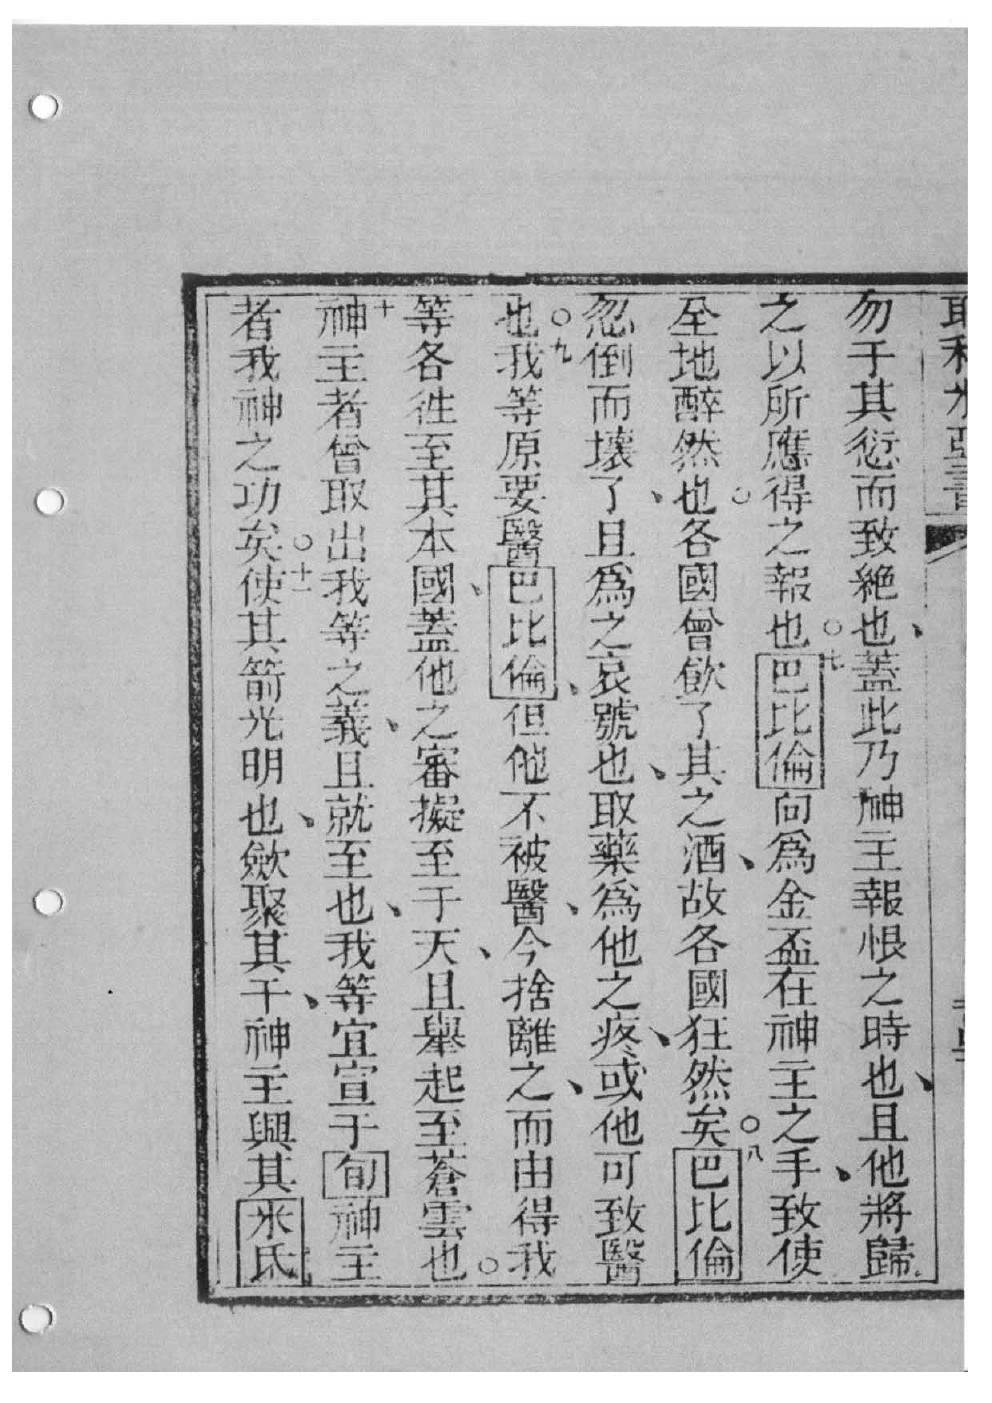 耶利米亞書
勿于其愆而致絶也、蓋此乃神主報恨之時也、且他將歸
之以所應得之報也○七巴比倫向爲金盃在神主之手、致使
全地醉然也○各國曾飲了其之酒、故各國狂然矣○八巴比倫
忽倒而壞了、且爲之哀號也、取藥爲他之疼、或他可致醫
也○九我等原要醫巴比倫、但他不被醫、今捨離之、而由得我
等各徃至其本國、蓋他之審擬至于天、且舉起至蒼雲也○
十神主者曾取出我等之義、且就至也、我等宜宣于旬神主
者我神之功矣○十一使其箭光明也、歛聚其干、神主興其米氐